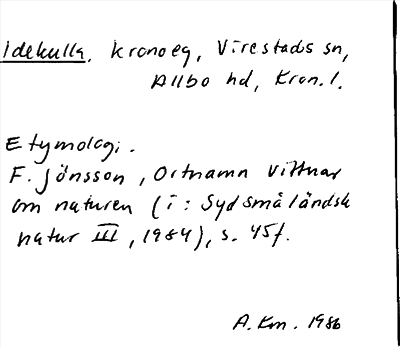 Idekulla. kronoeg, Virestads sn,
Allbo hd, Kron. l.
Etymologi.
F. Jönsson, Ortnamn vittnar
om naturen (i: Sydsmåländsk
natur III, 1984), s. 45f.
A.Km. 1986